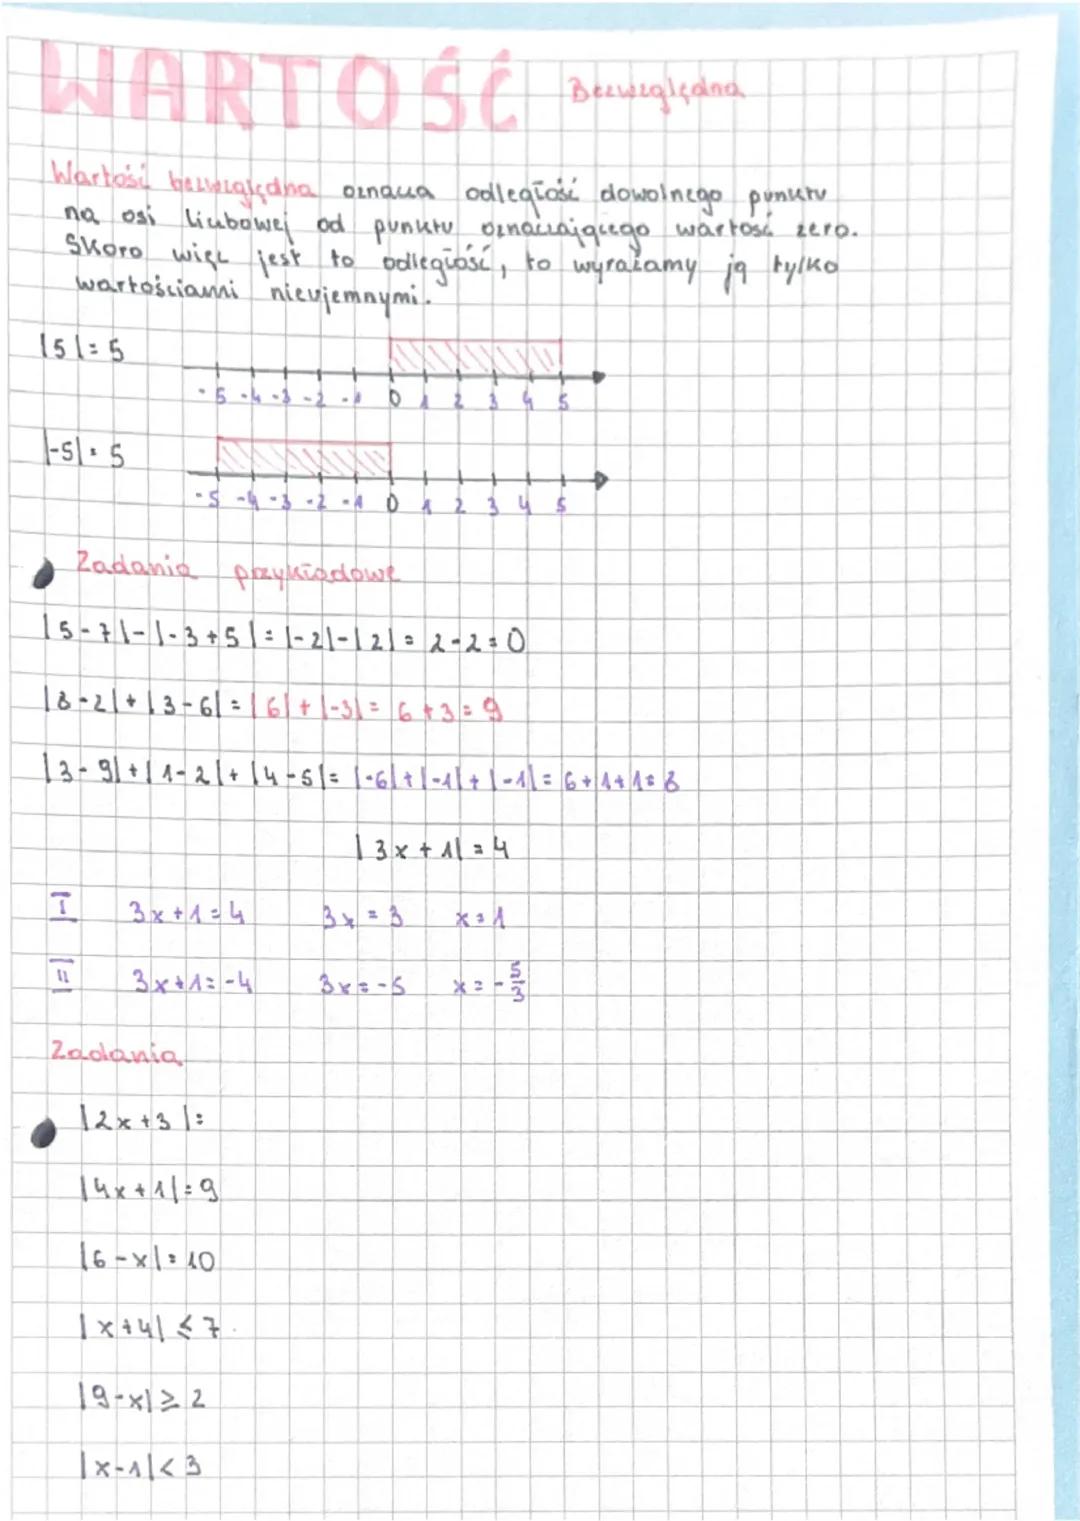 WARTOŚĆ Bezwzględna
Wartość bezwzględna oznacza odległość dowolnego punktu
na osi liczbowej od punktu oznaczającego wartość zero.
Skoro więc jest to odległość, to wyrażamy ją tylko
wartościami nieujemnymi.
|5|=5
-5 -4 -3 -2 -1 0 1 2 3 4 5
|-5|=5
-5 -4 -3 -2 -1 0 1 2 3 4 5
Zadania przykładowe
|5-7|-|-3+5|=|-2|-|2|=2-2=0
|8-2|+|3-6|=|6|+|-3|=6+3=9
|3-9|+|1-2|+|4-5|=|-6|+|-1|+|-1|=6+1+1=8
|3x+1|=4
I 3x+1=4 3x=3 x=1
II 3x+1=-4 3x=-5 x=-5/3
Zadania
|2x+3|=
|4x+1|=9
|6-x|=10
|x+4|≤7.
|9-x|≥2
|x-1|<3